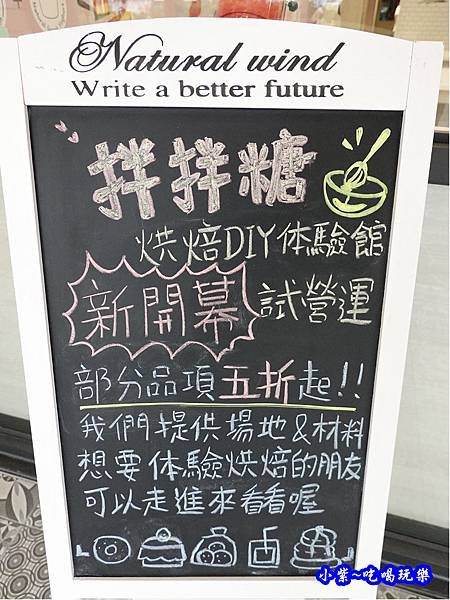 Natural wind
Write a better future
拌拌糖
烘焙DIY体驗館
新開幕 試營運
部分品項五折起!!
我們提供場地&材料
想要体驗烘焙的朋友
可以走進來看看喔
小紫~吃喝玩樂